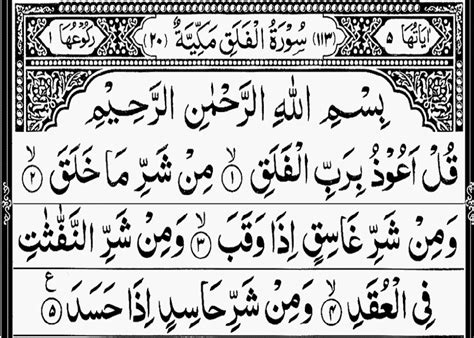 اٰيَاتُهَا ٥ (١١٣) سُوْرَةُ الْفَلَقِ مَكِّيَّةٌ (٢٠) رُكُوْعُهَا ١
بِسْمِ اللهِ الرَّحْمٰنِ الرَّحِيْمِ
قُلْ اَعُوْذُ بِرَبِّ الْفَلَقِ ۙ ١ مِنْ شَرِّ مَا خَلَقَ ۙ ٢
وَمِنْ شَرِّ غَاسِقٍ اِذَا وَقَبَ ۙ ٣ وَمِنْ شَرِّ النَّفّٰثٰتِ
فِى الْعُقَدِ ۙ ٤ وَمِنْ شَرِّ حَاسِدٍ اِذَا حَسَدَ ٥ ع